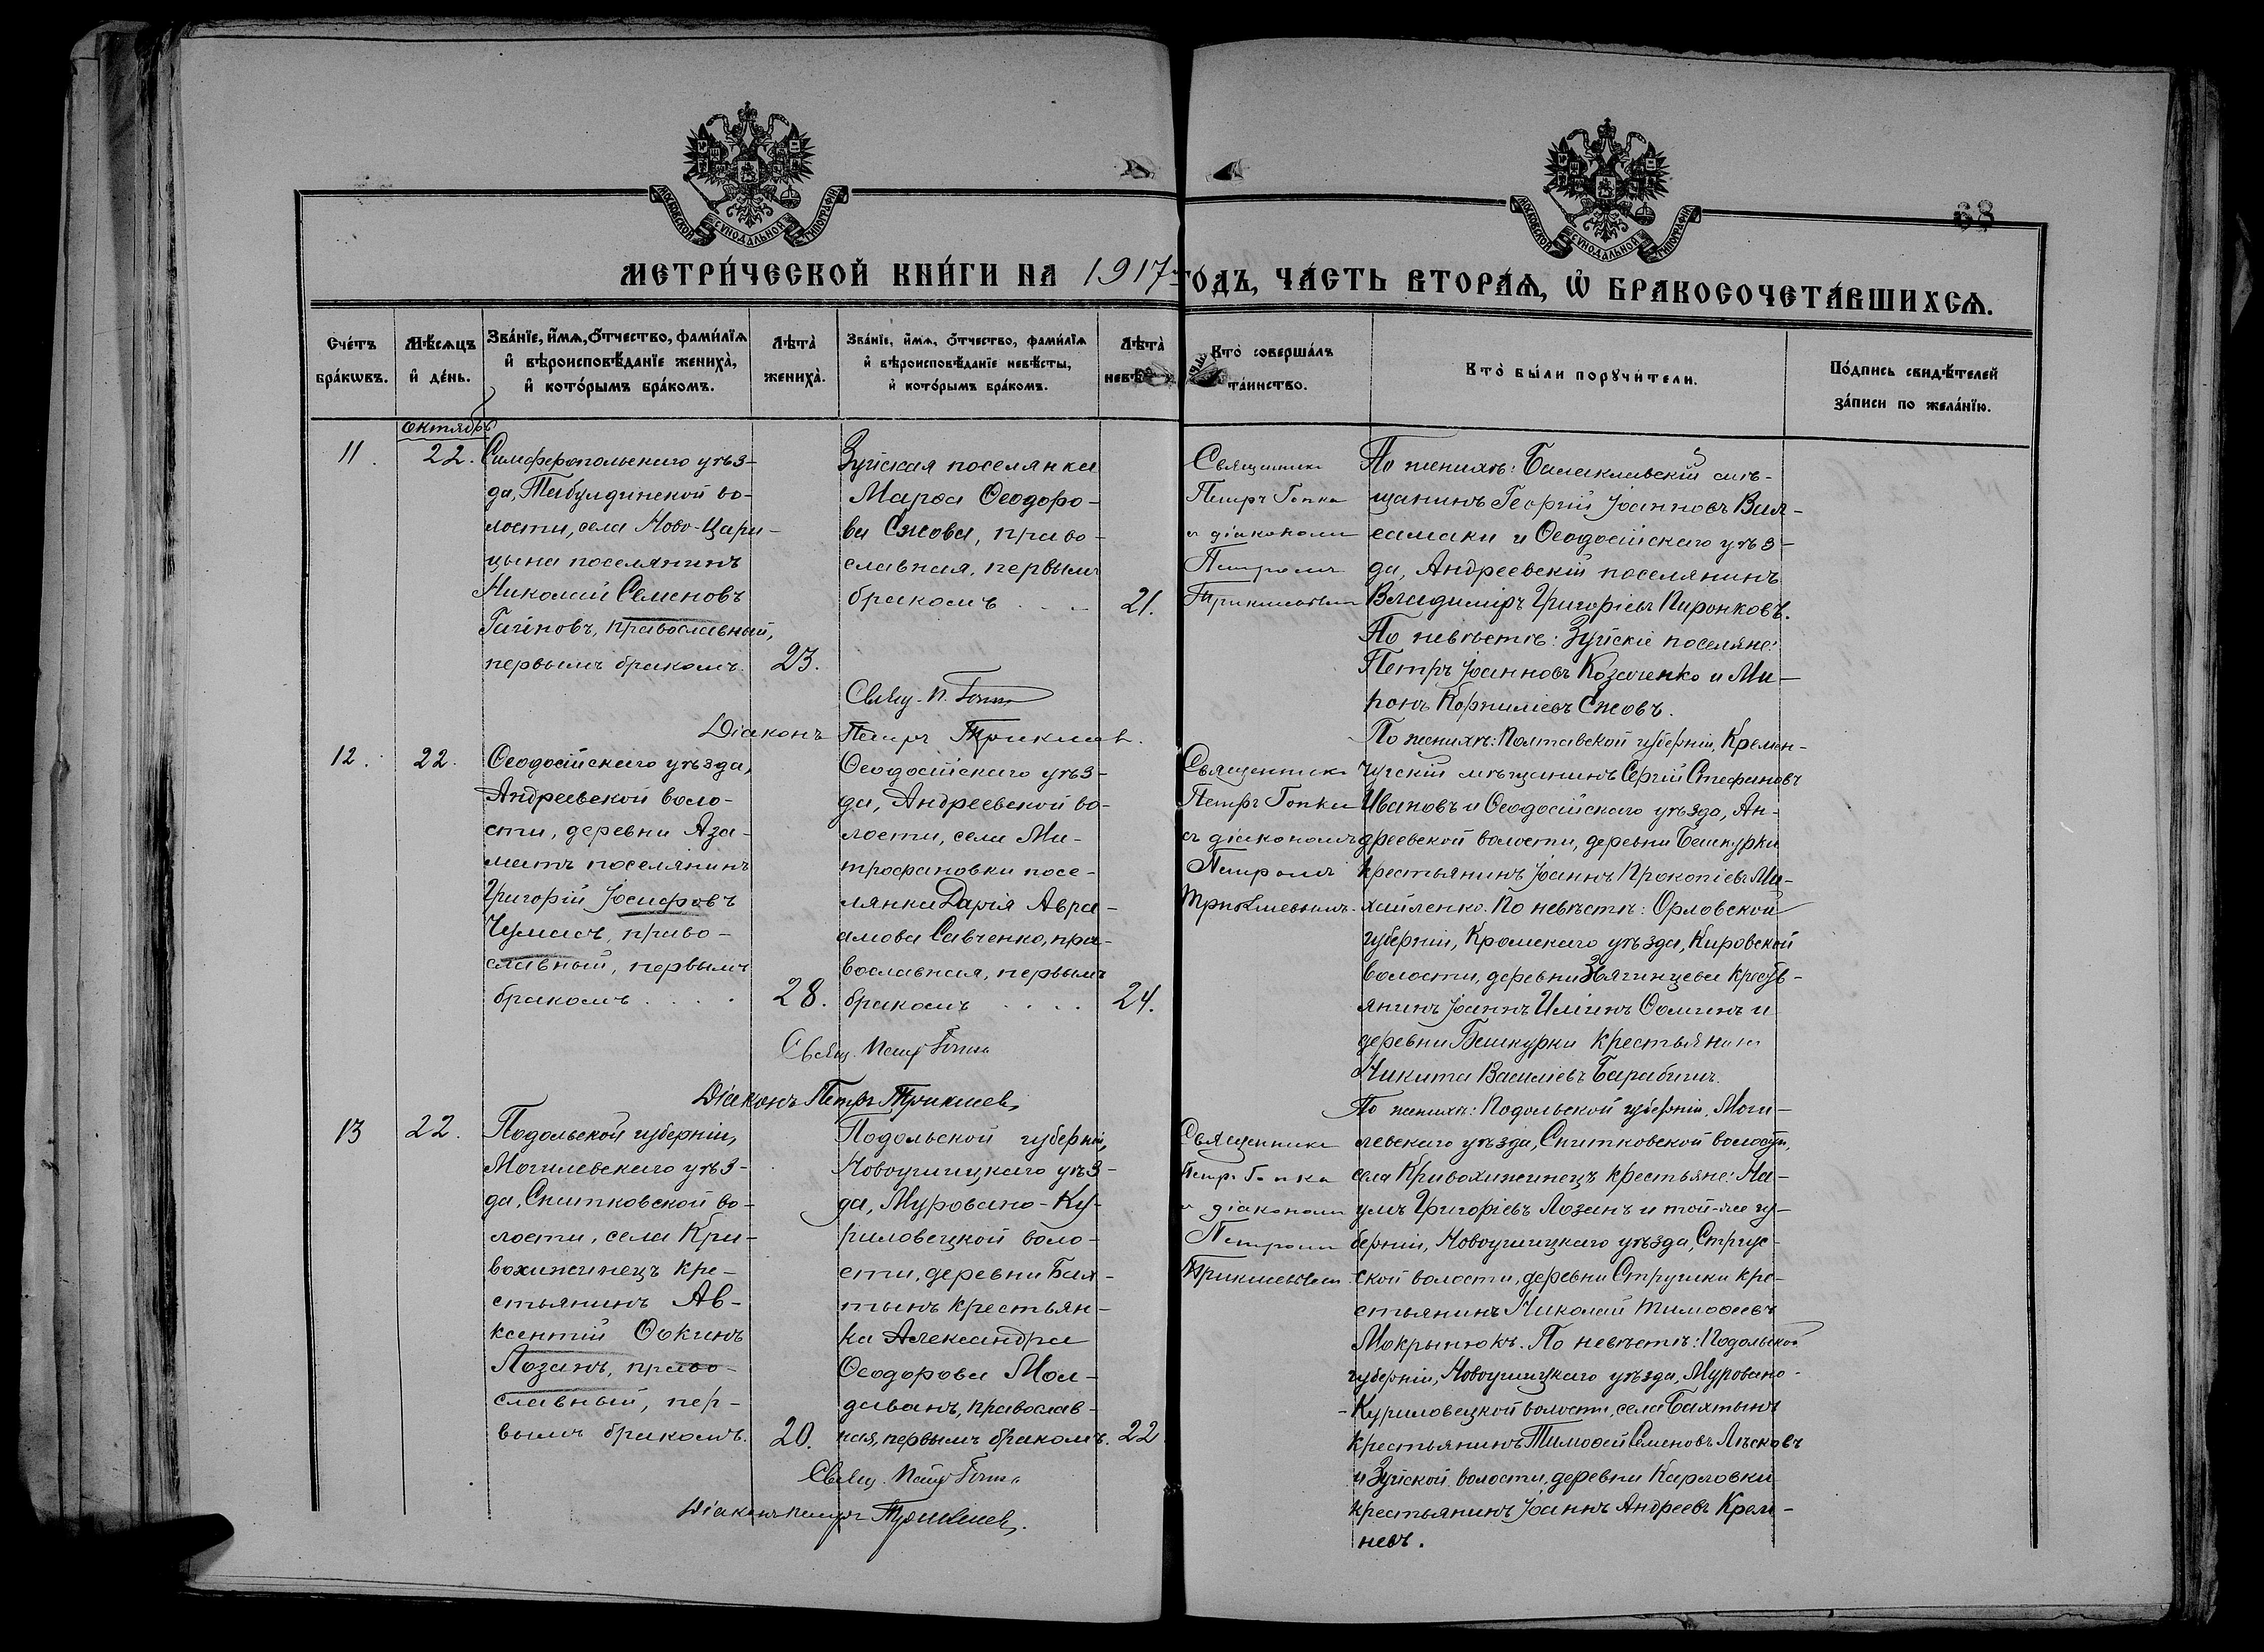 МОСКОВСКОЙ СУНОДАЛЬНОЙ ТИПОГРАФІИ
МОСКОВСКОЙ СУНОДАЛЬНОЙ ТИПОГРАФІИ
68
МЕТРИ́ЧЕСКОЙ КНИ́ГИ НА 1917 ГО́ДЪ, ЧА́СТЬ ВТОРА́Ѧ, Ѡ БРАКОСОЧЕТА́ВШИХСѦ.
Сче́тъ бра́кѡвъ.
Мѣ́сѧцъ и҆ де́нь.
Зва́нїе, и҆́мѧ, ѻ҆́тчество, фами́лїѧ
и҆ вѣроисповѣ́данїе жениха̀,
и҆ кото́рымъ бра́комъ.
Лѣта̀ жениха̀.
Зва́нїе, и҆́мѧ, ѻ҆́тчество, фами́лїѧ
и҆ вѣроисповѣ́данїе невѣ́сты,
и҆ кото́рымъ бра́комъ.
Лѣта̀
Кто̀ соверша́лъ та́инство.
Кто̀ бы́ли порꙋчи́тели.
По́дпись свидѣ́телей
за́писи по жела́нїю.
Октябрь
11.
22.
Симферопольскаго уѣз-
да, Табулдинской во-
лости, села Ново-Цари-
цына поселянинъ
Николай Семеновъ
Гагиновъ, православный,
первымъ бракомъ.
23.
Зуйская поселянка
Марѳа Ѳеодоро-
ва Ежова, право-
славная, первымъ
бракомъ
21.
Священникъ
Петръ Гопка
съ діакономъ
Петромъ
Триклиевымъ
По женихѣ: Балаклавскій мѣ-
щанинъ Георгій Іоанновъ Вал-
самаки и Ѳеодосійскаго уѣз-
да, Андреевскій поселянинъ
Владиміръ Григоріевъ Пиронковъ.
По невѣстѣ: Зуйскіе поселяне:
Петръ Іоанновъ Козаченко и Ми-
ронъ Корниліевъ Ежовъ.
Свящ. П. Гопка
Діаконъ Петръ Триклиев.
12.
22.
Ѳеодосійскаго уѣзда,
Андреевской воло-
сти, деревни Аза-
матъ поселянинъ
Григорій Іосифовъ
Чумакъ, право-
славный, первымъ
бракомъ
28.
Ѳеодосійскаго уѣз-
да, Андреевской во-
лости, села Ми-
трофановки посе-
лянка Дарія Авра-
амова Савченко, пра-
вославная, первымъ
бракомъ
24.
Священникъ
Петръ Гопка
съ діакономъ
Петромъ
Триклиевымъ.
По женихѣ: Полтавской губерніи, Кремен-
чугскій мѣщанинъ Сергій Стефановъ
Ивановъ и Ѳеодосійскаго уѣзда, Ан-
дреевской волости, деревни Бешкурки
крестьянинъ Іоаннъ Прокопіевъ Ми-
хайленко. По невѣстѣ: Орловской
губерніи, Кромскаго уѣзда, Кировской
волости, деревни Звягинцева кресть-
янинъ Іоаннъ Иліинъ Ѳоминъ и
деревни Бешкурки крестьянинъ
Никита Василіевъ Барабашъ.
Свящ. Петръ Гопка
Діаконъ Петръ Триклиев.
13
22.
Подольской губерніи,
Могилевскаго уѣз-
да, Снитковской во-
лости, села Кри-
вохижинецъ кре-
стьянинъ Ав-
ксентій Ѳокинъ
Лозанъ, право-
славный, пер-
вымъ бракомъ.
20.
Подольской губерніи,
Новоушицкаго уѣз-
да, Муровано-Ку-
риловецкой воло-
сти, деревни Бах-
тынъ крестьян-
ка Александра
Ѳеодорова Мол-
даванъ, православ-
ная, первымъ бракомъ.
22
Священникъ
Петръ Гопка
съ діакономъ
Петромъ
Триклиевымъ.
По женихѣ: Подольской губерніи, Моги-
левскаго уѣзда, Снитковской волости,
села Кривохижинецъ крестьяне: На-
умъ Григоріевъ Лозанъ и той-же гу-
берніи, Новоушицкаго уѣзда, Струж-
ской волости, деревни Стружки кре-
стьянинъ Николай Тимоѳеевъ
Мокрынюкъ. По невѣстѣ: Подольской
губерніи, Новоушицкаго уѣзда, Муровано-
-Куриловецкой волости, села Бахтынъ
крестьянинъ Тимоѳей Семеновъ Лѣсковъ
и Зуйской волости, деревни Карловки
крестьянинъ Іоаннъ Андреевъ Крем-
невъ.
Свящ. Петръ Гопка
Діаконъ Петръ Триклиев.